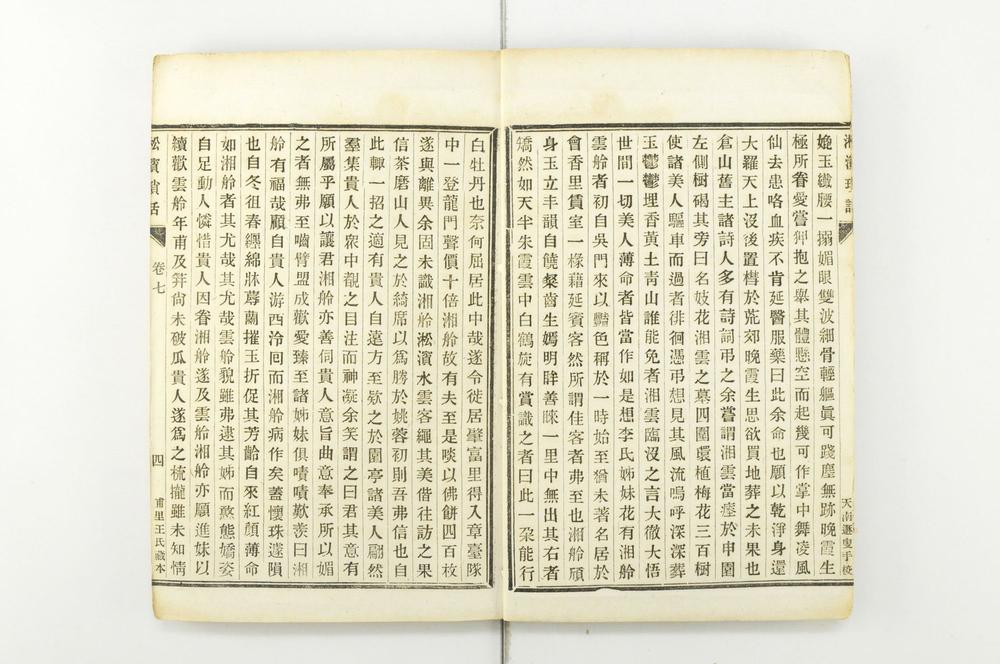 天南遯叟手校
娩玉纖腰一搦媚眼雙波細骨輕軀眞可踐塵無跡晚霞生
極所眷愛嘗伸抱之舉其體懸空而起幾可作掌中舞凌風
仙去患咯血疾不肯延醫服藥曰此余命也願以乾淨身還
大羅天上沒後置櫬於荒郊晚霞生思欲買地葬之未果也
倉山舊主諸詩人多有詩詞弔之余嘗謂湘雲當瘞於申園
左側樹碣其旁曰名妓花湘雲之墓四圍環植梅花三百樹
使諸美人驅車而過者徘徊憑弔想見其風流嗚呼深深葬
玉鬱鬱埋香黃土靑山誰能免者湘雲臨沒之言大徹大悟
世間一切美人薄命者皆當作如是想李氏姊妹花有湘舲
雲舲者初自吳門來以豔色稱於一時始至猶未著名居於
會香里賃室一椽藉延賓客然所謂佳客者弗至也湘舲頎
身玉立丰韻自饒粲齒生嫣明眸善睞一里中無出其右者
矯然如天半朱霞雲中白鶴旋有賞識之者曰此一朶能行
白牡丹也奈何屈居此中哉遂令徙居肇富里得入章臺隊
中一登龍門聲價十倍湘舲故有夫至是啖以佛餅四百枚
遂與離異余固未識湘舲淞濱水雲客繩其美偕往訪之果
信茶磨山人見之於綺席以爲勝於姚蓉初則吾弗信也自
此輙一招之適有貴人自遠方至欵之於園亭諸美人翩然
羣集貴人於衆中覩之目注而神凝余笑謂之曰君其意有
所屬乎願以讓君湘舲亦善伺貴人意旨曲意奉承所以媚
之者無弗至嚙臂盟成歡愛臻至諸姊妹俱嘖嘖歎羨曰湘
舲有福哉顧自貴人游西泠回而湘舲病作矣蓋懷珠遽隕
也自冬徂春纏綿牀蓐蘭摧玉折促其芳齡自來紅顏薄命
如湘舲者其尤哉其尤哉雲舲貌雖弗逮其姊而憨態嬌姿
自足動人憐惜貴人因眷湘舲遂及雲舲湘舲亦願進妹以
續歡雲舲年甫及笄尙未破瓜貴人遂爲之梳攏雖未知情
淞濱瑣話 卷七 四 甫里王氏藏本